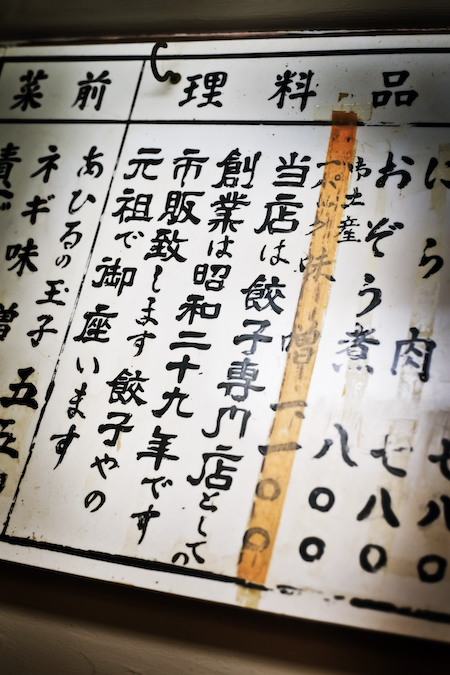 品料理
七八
にら肉 七八〇
おぞう煮 八〇〇
御土産
味噌 一一〇〇
当店は餃子専門店としての
創業は昭和二十九年です
市販致します餃子やの
元祖で御座います
前菜
あひるの玉子 五五
ネギ味噌